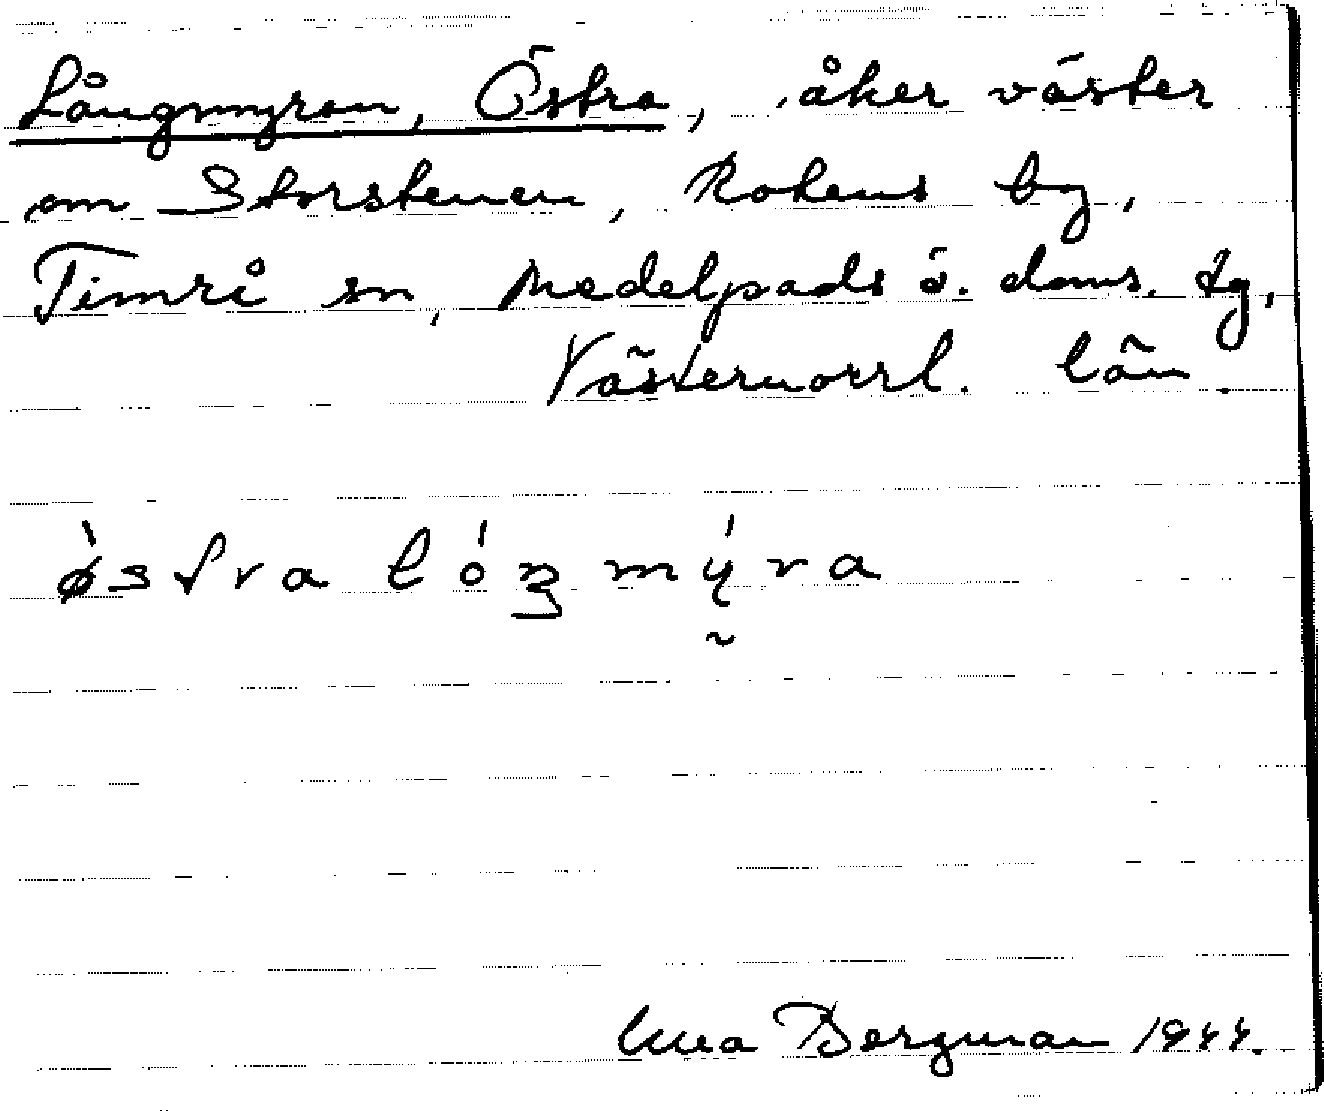 Långmyran, Östra, åker väster
om Storstenen, Rokens by,
Timrå sn, Medelpads ö. doms. tg,
Västernorrl. län.
østra lóŋmýra
Bergman 1944.